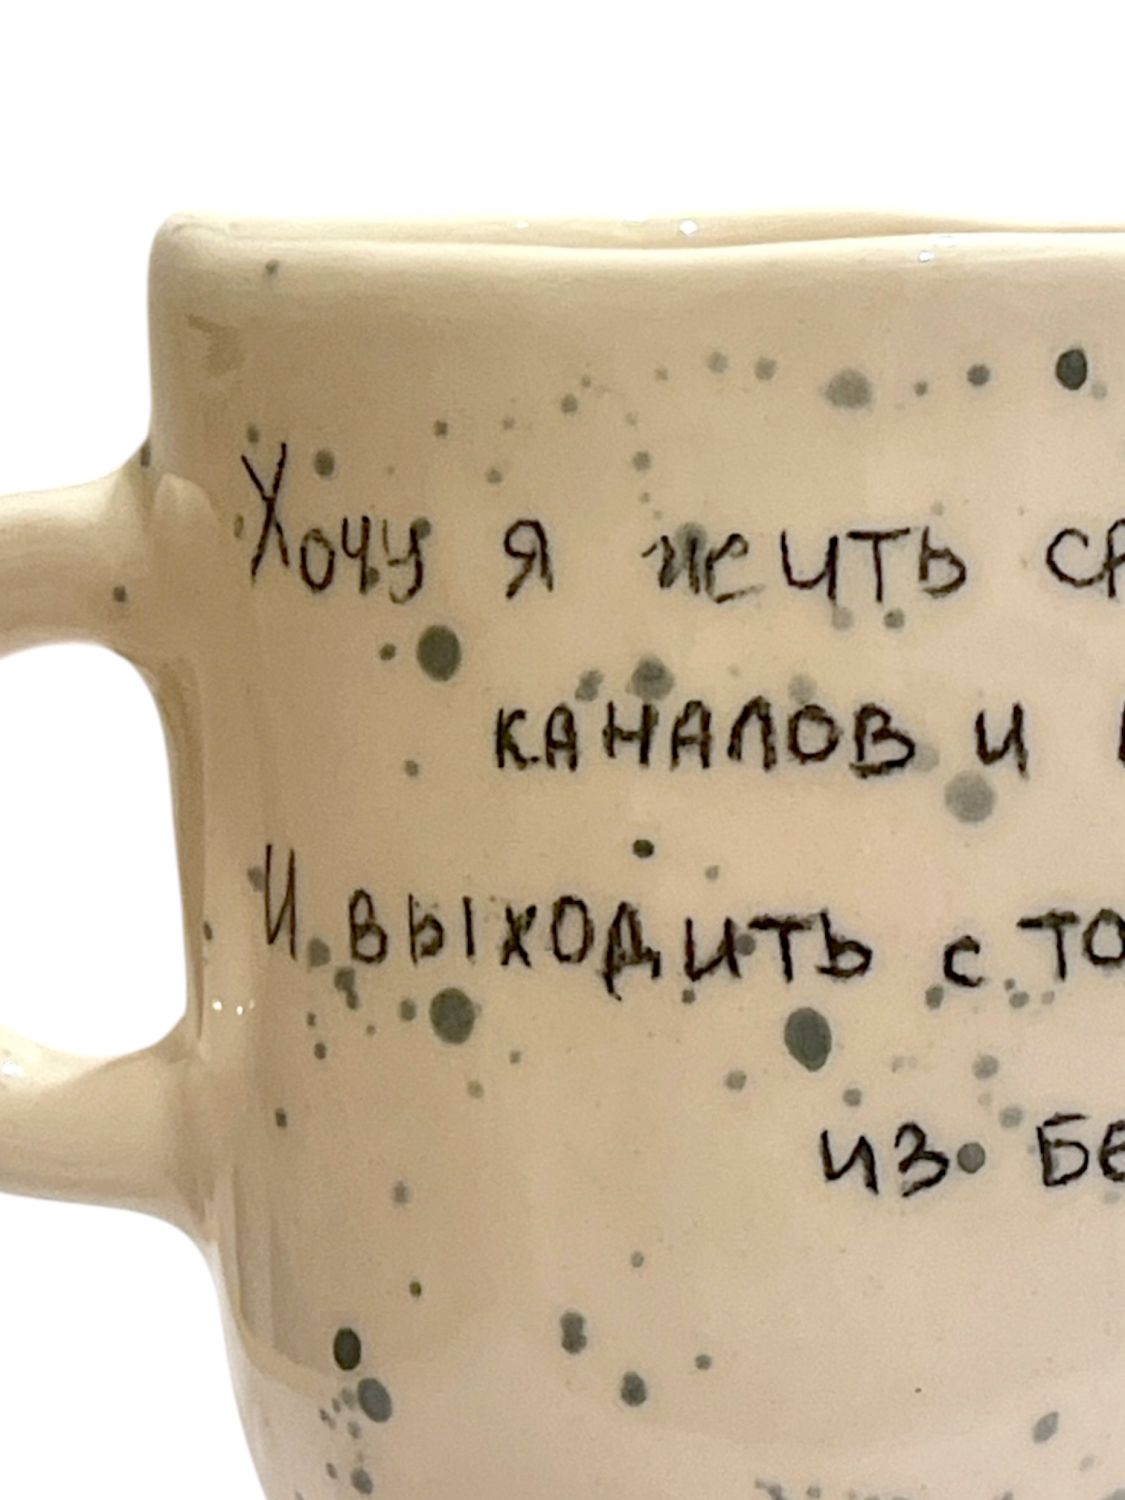 Хочу я жить ср
каналов и
И выходить с то
из бе